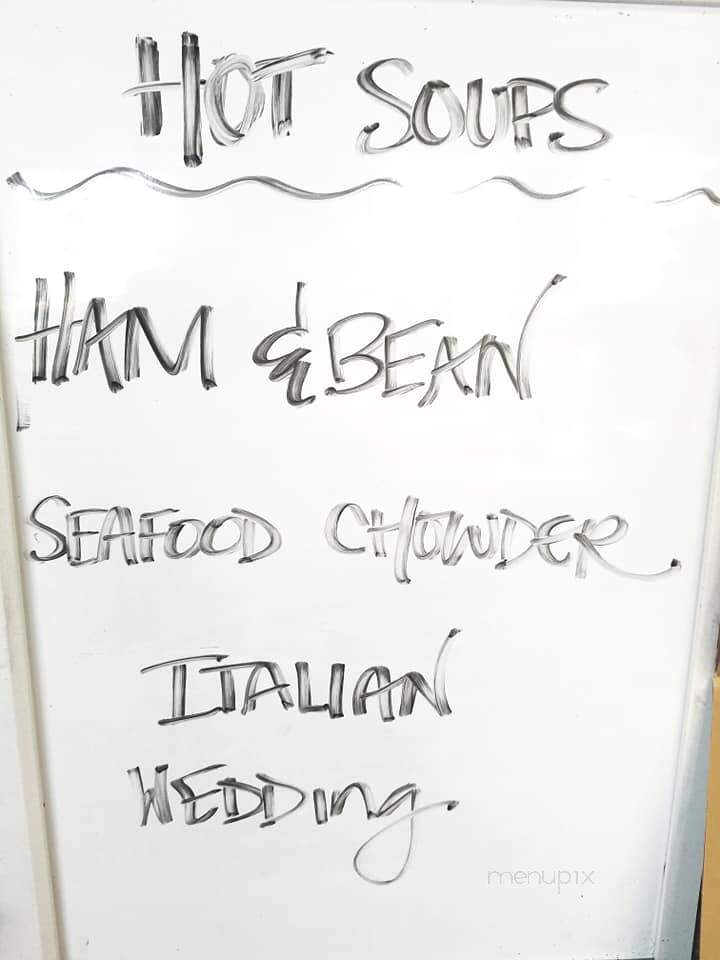 HOT SOUPS
HAM & BEAN
SEAFOOD CHOWDER
ITALIAN
WEDDing
menupix